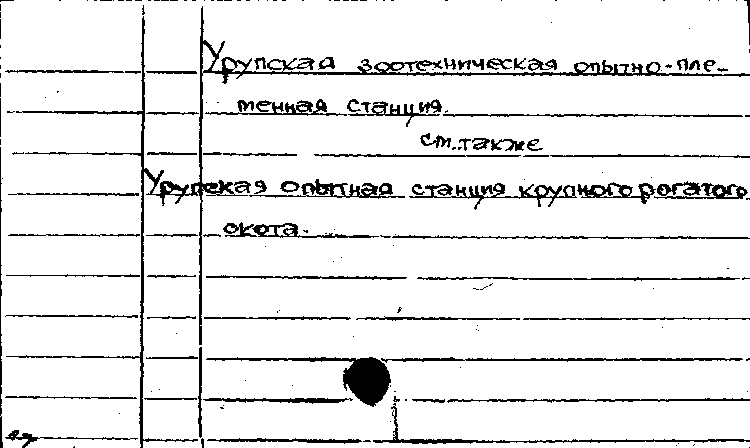 Урупская зоотехническая опытно-пле-
менная станция.
см. также
Урупская опытная станция крупного рогатого
скота.